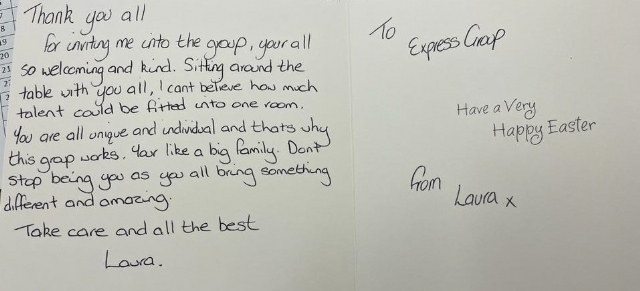 Thank you all
for inviting me into the group, your all
so welcoming and kind. Sitting around the
table with you all, I cant believe how much
talent could be fitted into one room.
You are all unique and individual and thats why
this group works. Your like a big family. Dont
stop being you as you all bring something
different and amazing.
Take care and all the best
Laura.
To
Express Group
Have a Very
Happy Easter
from
Laura x